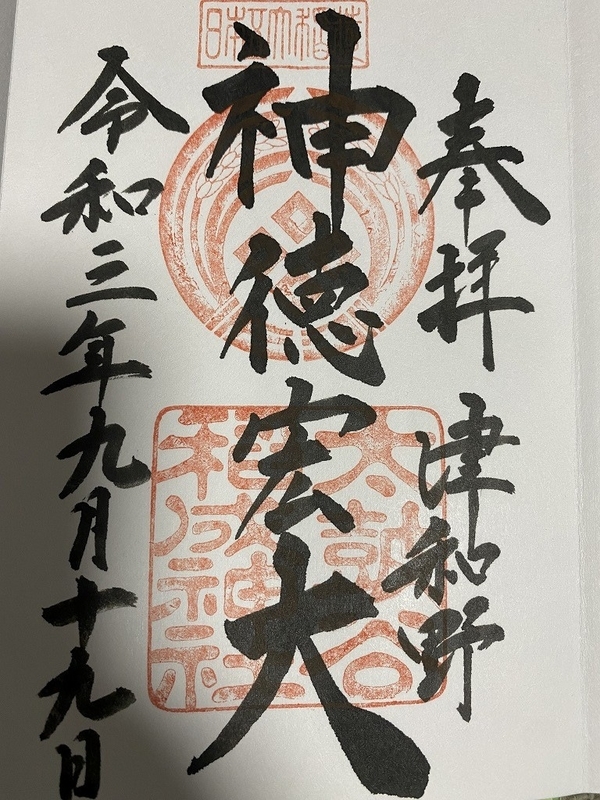 奉拝 津和野
神徳宏大
令和三年九月十九日
日本五大稲荷
太皷谷稲成神社